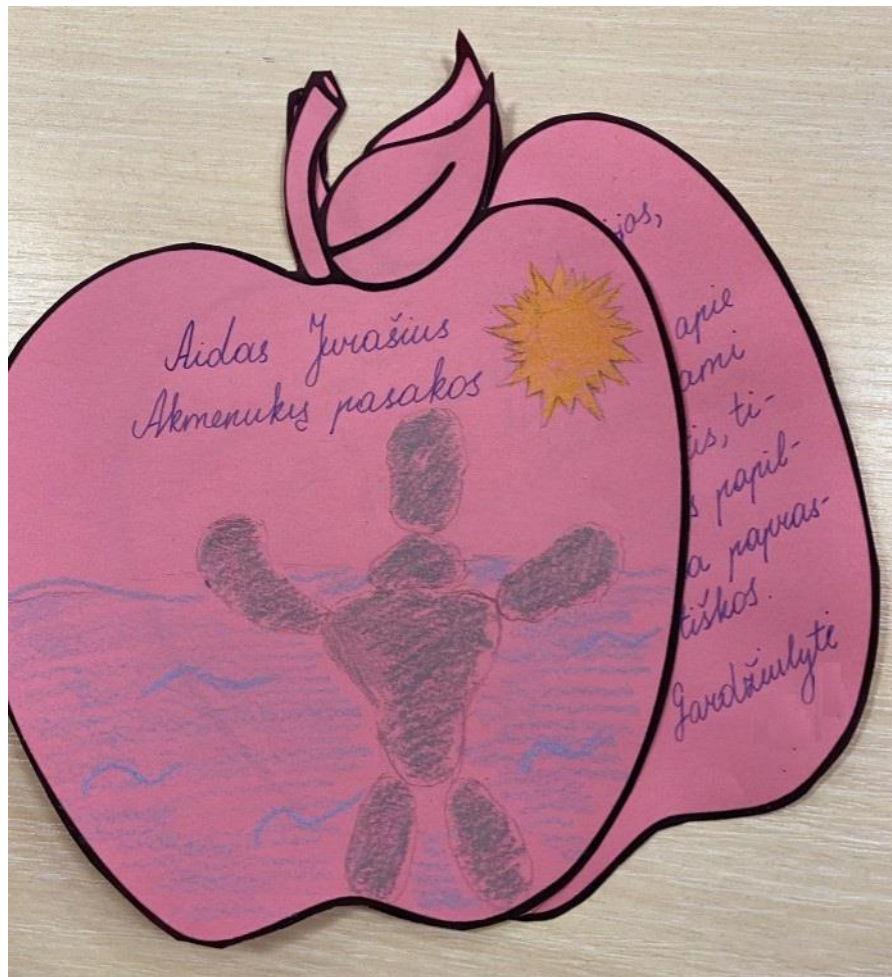 Aidas Jurašius
Akmenukų pasakos
apie
papil-
papras-
tiškos.
Gardžiulytė